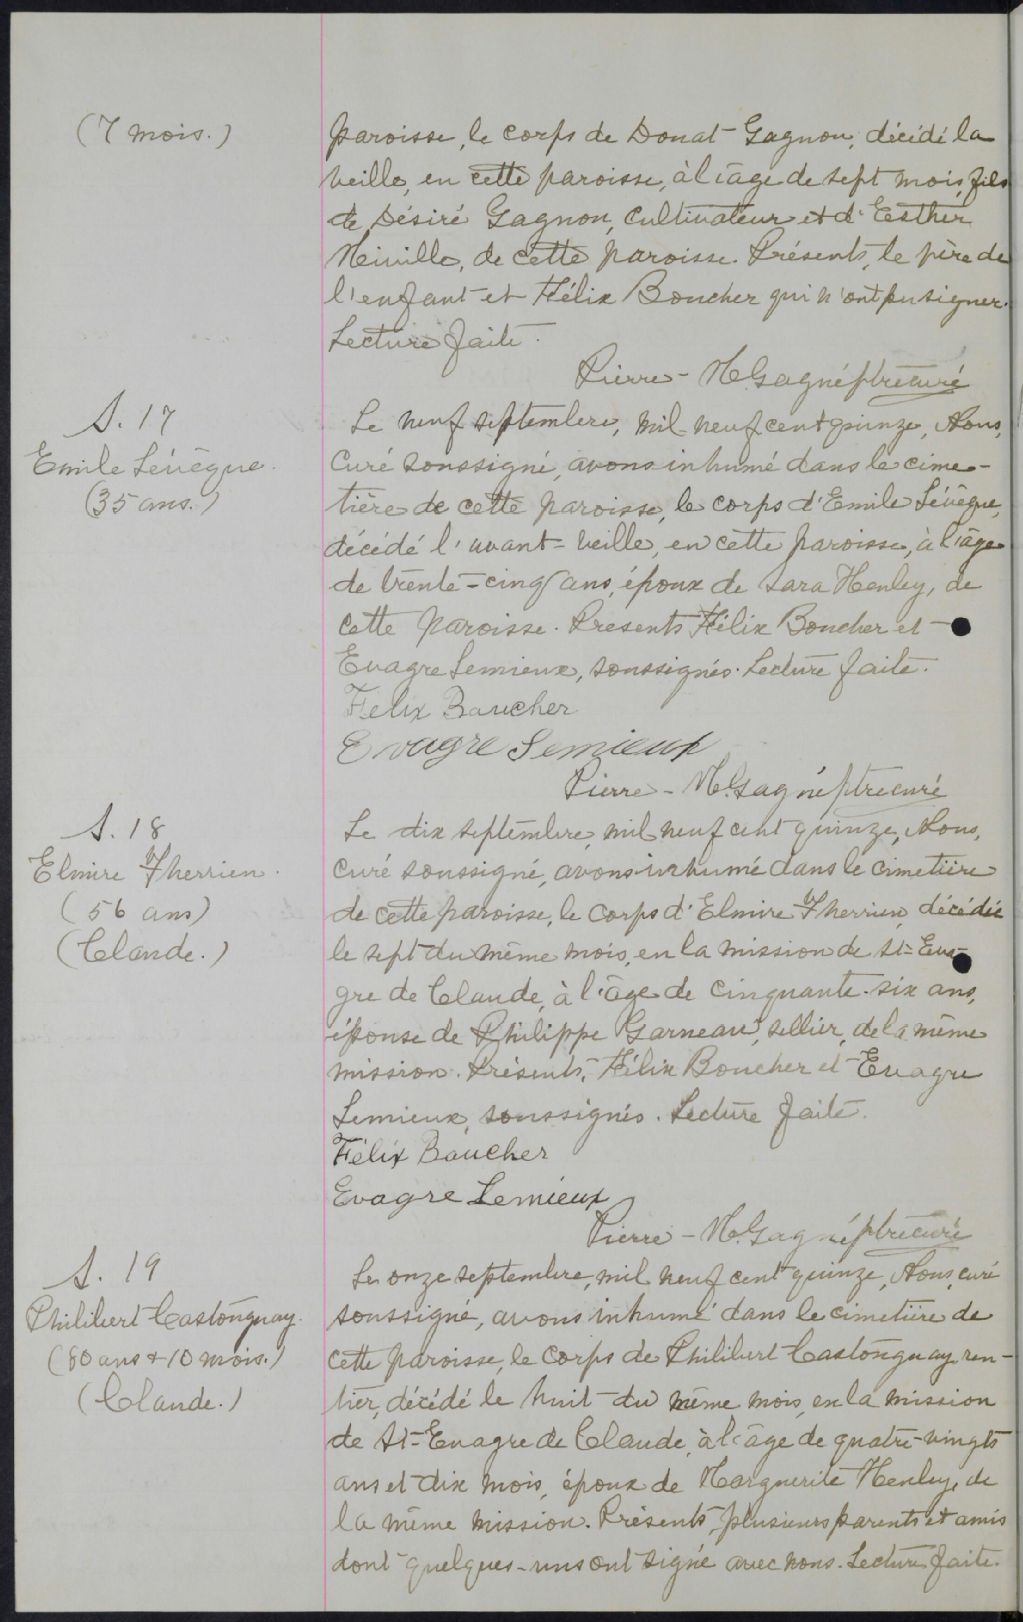 (7 mois.)
paroisse, le corps de Donat Gagnon, décédé la
veille, en cette paroisse, à l'âge de sept mois, fils
de Désiré Gagnon, cultivateur et d'Esther
Miville, de cette paroisse. Présents, le père de
l'enfant et Félix Boucher qui n'ont pu signer.
Lecture faite.
Pierre-M. Gagné ptre curé
S. 17
Emile Lévêque.
(35 ans.)
Le neuf septembre, mil neuf cent quinze, Nous,
curé soussigné, avons inhumé dans le cime-
tière de cette paroisse, le corps d'Emile Lévêque,
décédé l'avant-veille, en cette paroisse, à l'âge
de trente-cinq ans, époux de Sara Henley, de
cette paroisse. Présents Félix Boucher et
Evagre Lemieux, soussignés. Lecture faite.
Félix Baucher
Evagre Lemieux
Pierre-M. Gagné ptre curé
S. 18
Elmire Therrien.
(56 ans)
(Claude.)
Le dix septembre, mil neuf cent quinze, Nous,
curé soussigné, avons inhumé dans le cimetière
de cette paroisse, le corps d'Elmire Therrien, décédée
le sept du même mois, en la mission de St-Eva-
gre de Claude, à l'âge de cinquante-six ans,
épouse de Philippe Garneau, sellier, de la même
mission. Présents, Félix Boucher et Evagre
Lemieux, soussignés. Lecture faite.
Félix Baucher
Evagre Lemieux
Pierre-M. Gagné ptre curé
S. 19
Philibert Castonguay.
(80 ans & 10 mois.)
(Claude.)
Le onze septembre, mil neuf cent quinze, Nous, curé
soussigné, avons inhumé dans le cimetière de
cette paroisse, le corps de Philibert Castonguay, ren-
tier, décédé le huit du même mois, en la mission
de St-Evagre de Claude, à l'âge de quatre-vingts
ans et dix mois, époux de Marguerite Henley, de
la même mission. Présents, plusieurs parents et amis
dont quelques-uns ont signé avec nous. Lecture faite.